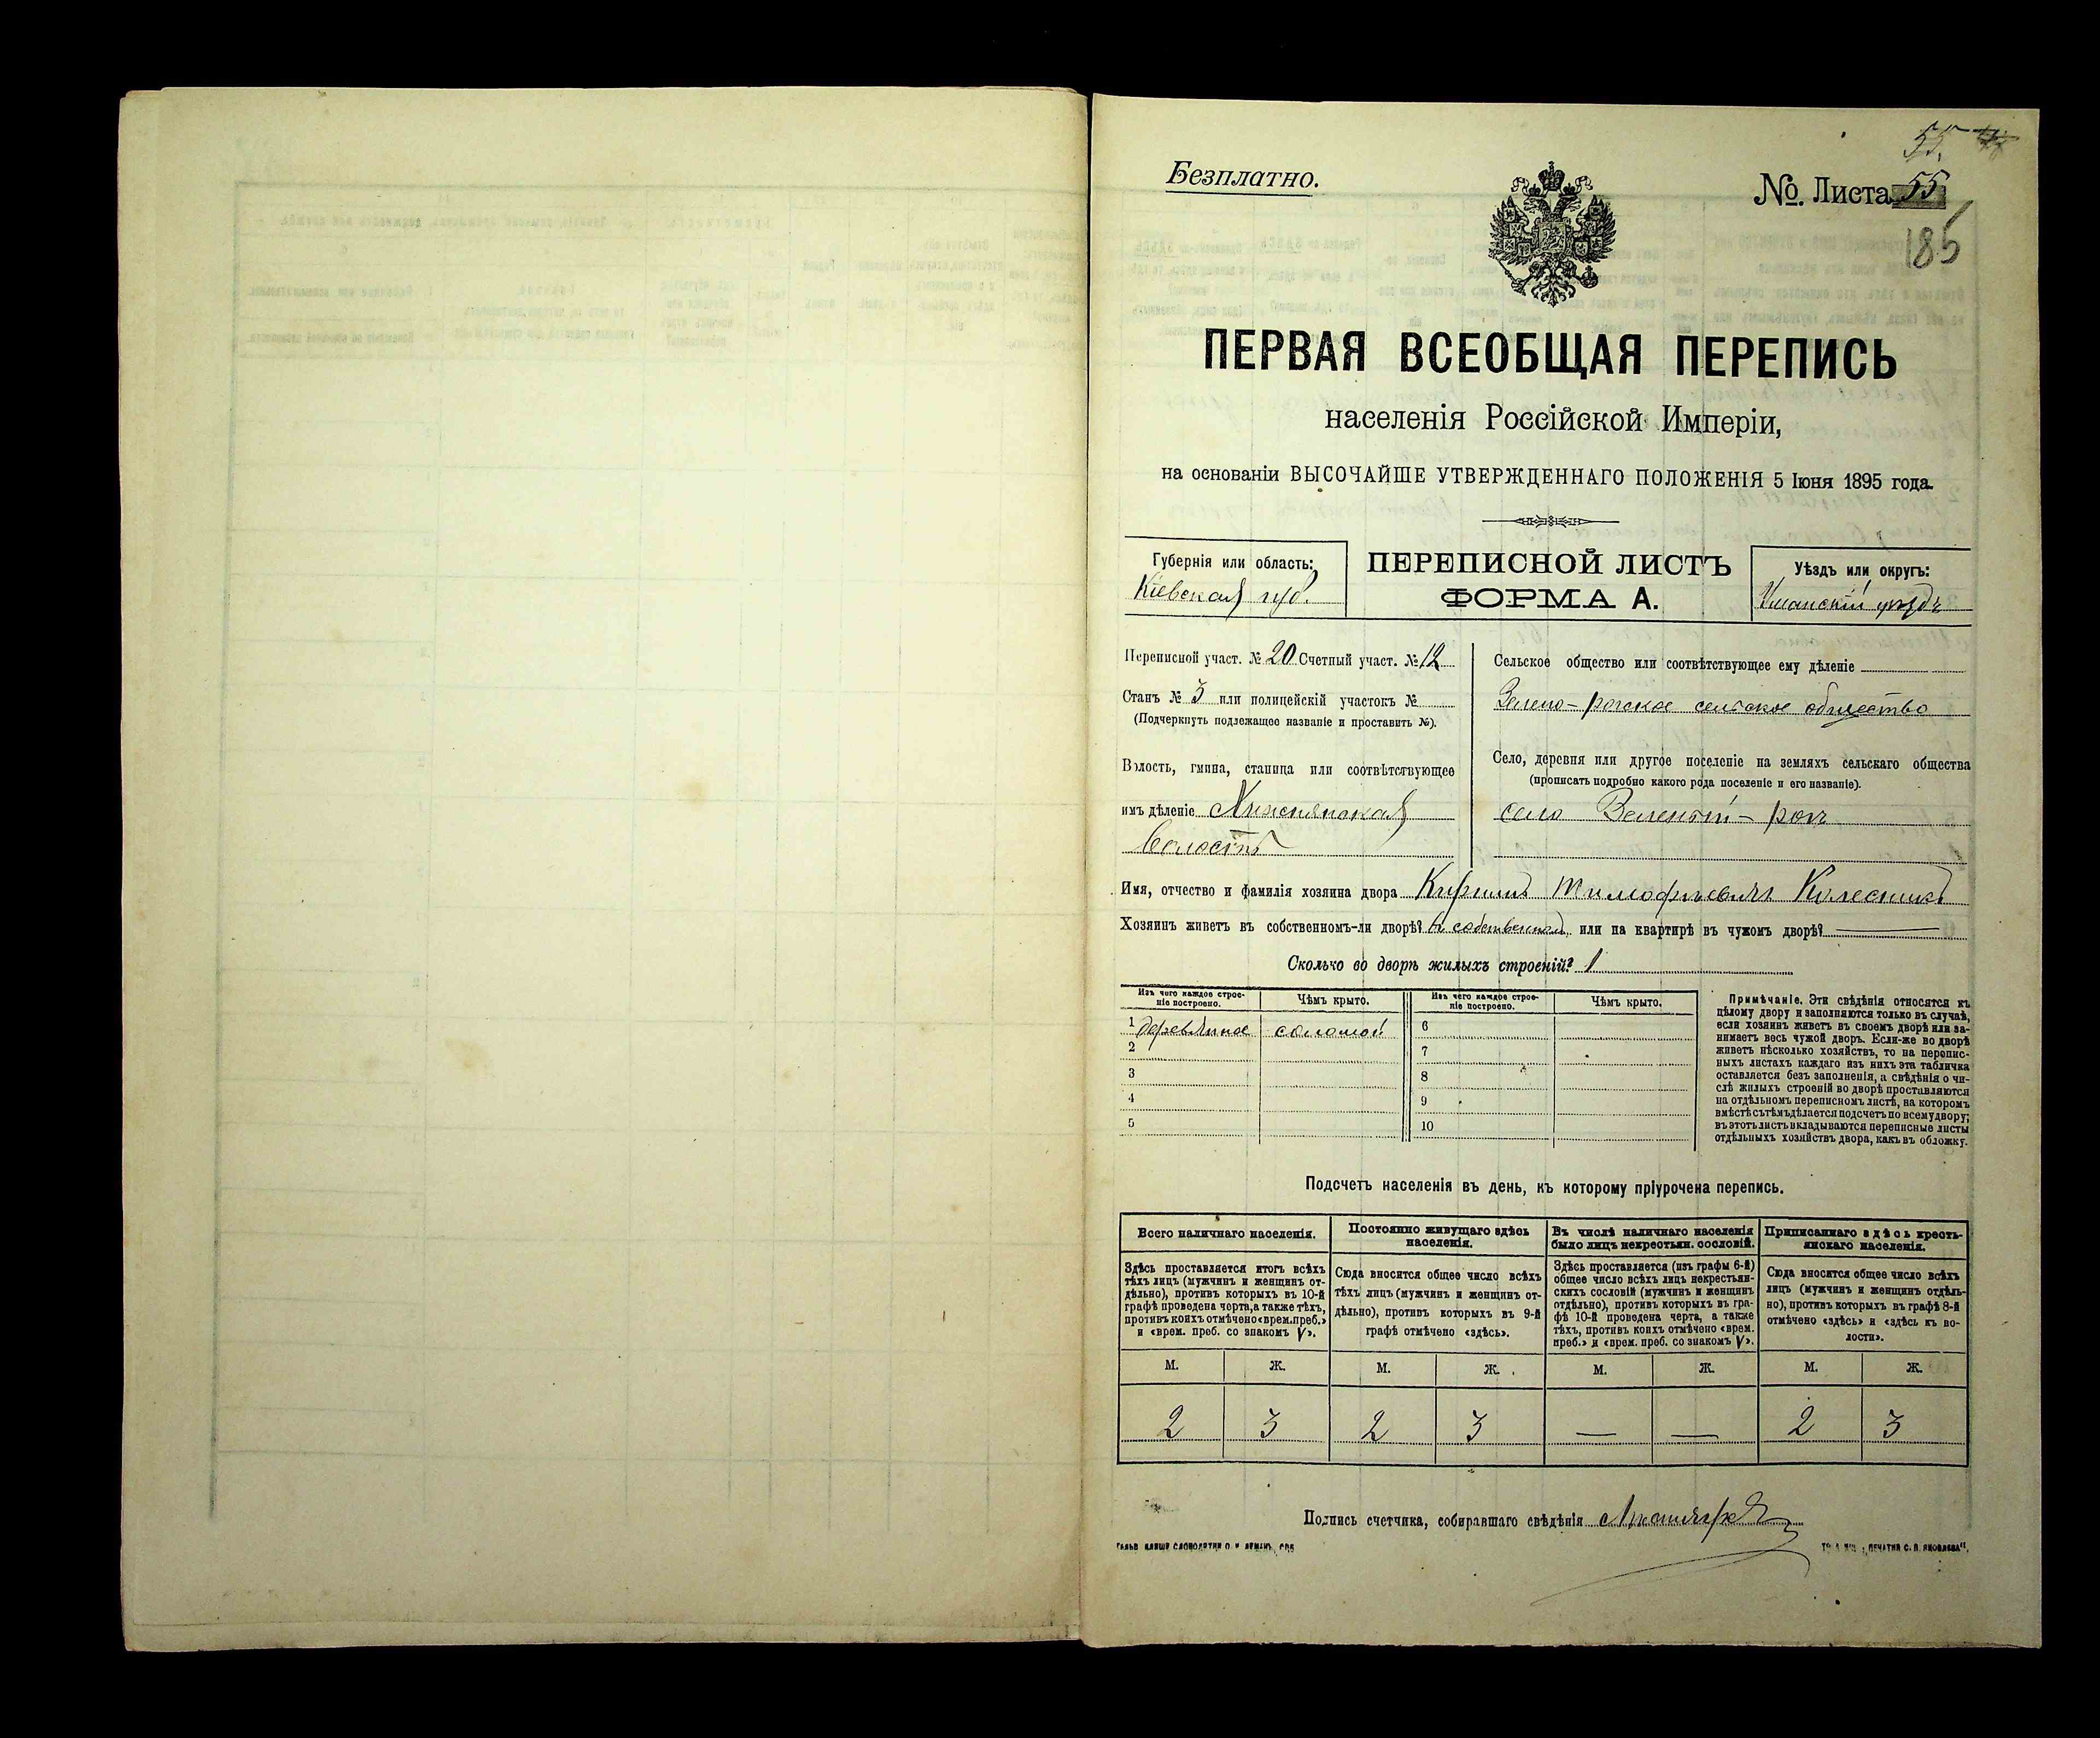 55.
Безплатно.
№. Листа 55
186
ПЕРВАЯ ВСЕОБЩАЯ ПЕРЕПИСЬ
населенія Россійской Имперіи,
на основаніи ВЫСОЧАЙШЕ УТВЕРЖДЕННАГО ПОЛОЖЕНІЯ 5 Іюня 1895 года.
Губернія или область:
Кіевская губ.
ПЕРЕПИСНОЙ ЛИСТЪ
ФОРМА А.
Уѣздъ или округъ:
Уманскій уѣздъ
Переписной участ. № 20 Счетный участ. № 12
Станъ № 3 или полицейскій участокъ №
(Подчеркнуть подлежащее названіе и проставить №).
Волость, гмина, станица или соотвѣтствующее
имъ дѣленіе
Волость
Сельское общество или соотвѣтствующее ему дѣленіе
Зелено-рогское сельское общество
Село, деревня или другое поселеніе на земляхъ сельскаго общества
(прописать подробно какого рода поселеніе и его названіе).
село Зеленый-рогъ
Имя, отчество и фамилія хозяина двора Кириллъ Тимофѣевичъ Колесникъ
Хозяинъ живетъ въ собственномъ-ли дворѣ? въ собственномъ или на квартирѣ въ чужомъ дворѣ? —
Сколько во дворѣ жилыхъ строеній? 1
Изъ чего каждое строе-
ніе построено.
Чѣмъ крыто.
Изъ чего каждое строе-
ніе построено.
Чѣмъ крыто.
1 деревянное соломой 6
2 7
3 8
4 9
5 10
Примѣчаніе. Эти свѣдѣнія относятся къ
цѣлому двору и заполняются только въ случаѣ,
если хозяинъ живетъ въ своемъ дворѣ или за-
нимаетъ весь чужой дворъ. Если-же во дворѣ
живетъ нѣсколько хозяйствъ, то на перепис-
ныхъ листахъ каждаго изъ нихъ эта табличка
оставляется безъ заполненія, а свѣдѣнія о чи-
слѣ жилыхъ строеній во дворѣ проставляются
на отдѣльномъ переписномъ листѣ, на которомъ
вмѣстѣ съ тѣмъ дѣлается подсчетъ по всему двору;
въ этотъ листъ вкладываются переписные листы
отдѣльныхъ хозяйствъ двора, какъ въ обложку.
Подсчетъ населенія въ день, къ которому пріурочена перепись.
Всего наличнаго населенія.
Здѣсь проставляется итогъ всѣхъ
тѣхъ лицъ (мужчинъ и женщинъ от-
дѣльно), противъ которыхъ въ 10-й
графѣ проведена черта, а также тѣхъ,
противъ коихъ отмѣчено «врем. преб.»
и «врем. преб. со знакомъ V».
Постоянно живущаго здѣсь
населенія.
Сюда вносится общее число всѣхъ
тѣхъ лицъ (мужчинъ и женщинъ от-
дѣльно), противъ которыхъ въ 9-й
графѣ отмѣчено «здѣсь».
Въ числѣ наличнаго населенія
было лицъ некрестьян. сословій.
Здѣсь проставляется (изъ графы 6-й)
общее число всѣхъ лицъ некрестьян-
скихъ сословій (мужчинъ и женщинъ
отдѣльно), противъ которыхъ въ гра-
фѣ 10-й проведена черта, а также
тѣхъ, противъ коихъ отмѣчено «врем.
преб.» и «врем. преб. со знакомъ V».
Приписаннаго здѣсь кресть-
янскаго населенія.
Сюда вносится общее число всѣхъ
лицъ (мужчинъ и женщинъ отдѣль-
но), противъ которыхъ въ графѣ 8-й
отмѣчено «здѣсь» и «здѣсь къ во-
лости».
М. Ж. М. Ж. М. Ж. М. Ж.
2 3 2 3 — — 2 3
Подпись счетчика, собиравшаго свѣдѣнія